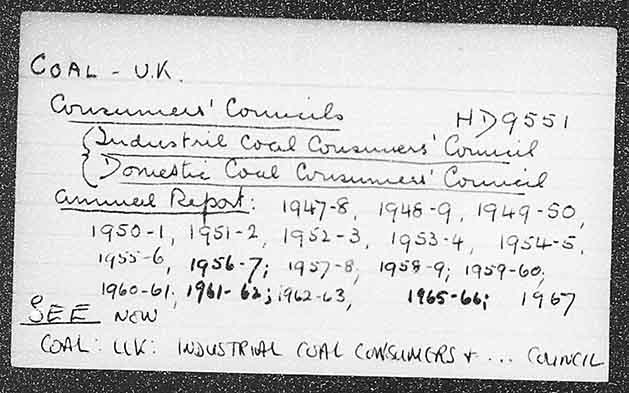 COAL - U.K.
Consumers' Councils HD9551
(Industril Coal Consumers' Council
(Domestic Coal Consumers' Council
Annual Report: 1947-8, 1948-9, 1949-50,
1950-1, 1951-2, 1952-3, 1953-4, 1954-5,
1955-6, 1956-7; 1957-8, 1958-9; 1959-60;
1960-61, 1961-62; 1962-63, 1965-66; 1967
SEE NEW
COAL: UK: INDUSTRIAL COAL CONSUMERS + ... COUNCIL